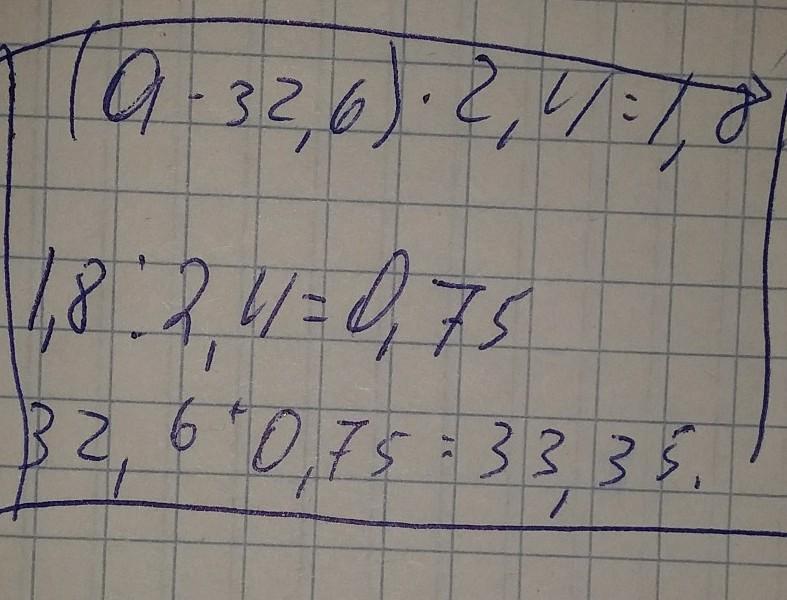 (a - 32,6) · 2,4 = 1,8
1,8 : 2,4 = 0,75
32,6 + 0,75 = 33,35.